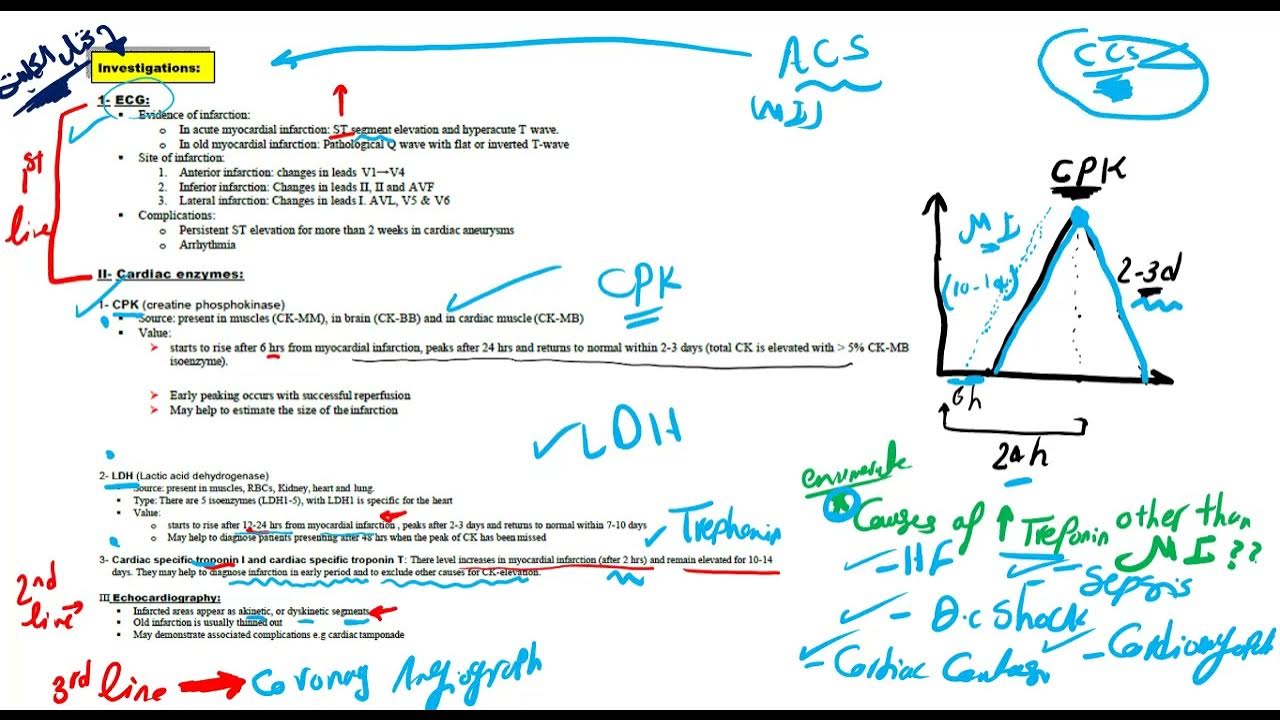 Investigations:
ACS
(MI)
CCS
1- ECG:
▪ Evidence of infarction:
o In acute myocardial infarction: ST segment elevation and hyperacute T wave.
o In old myocardial infarction: Pathological Q wave with flat or inverted T-wave
▪ Site of infarction:
1. Anterior infarction: changes in leads V1→V4
2. Inferior infarction: Changes in leads II, II and AVF
3. Lateral infarction: Changes in leads I. AVL, V5 & V6
▪ Complications:
o Persistent ST elevation for more than 2 weeks in cardiac aneurysms
o Arrhythmia
1st
line
II- Cardiac enzymes:
CPK
1- CPK (creatine phosphokinase)
▪ Source: present in muscles (CK-MM), in brain (CK-BB) and in cardiac muscle (CK-MB)
▪ Value:
➢ starts to rise after 6 hrs from myocardial infarction, peaks after 24 hrs and returns to normal within 2-3 days (total CK is elevated with > 5% CK-MB
isoenzyme).
➢ Early peaking occurs with successful reperfusion
➢ May help to estimate the size of the infarction
LDH
2- LDH (Lactic acid dehydrogenase)
Source: present in muscles, RBCs, Kidney, heart and lung.
▪ Type: There are 5 isoenzymes (LDH1-5), with LDH1 is specific for the heart
▪ Value:
o starts to rise after 12-24 hrs from myocardial infarction , peaks after 2-3 days and returns to normal within 7-10 days
o May help to diagnose patients presenting after 48 hrs when the peak of CK has been missed
3- Cardiac specific troponin I and cardiac specific troponin T: There level increases in myocardial infarction (after 2 hrs) and remain elevated for 10-14
days. They may help to diagnose infarction in early period and to exclude other causes for CK-elevation.
2nd
line
III Echocardiography:
▪ Infarcted areas appear as akinetic, or dyskinetic segments
▪ Old infarction is usually thinned out
▪ May demonstrate associated complications e.g cardiac tamponade
3rd line → Coronary Angiograph
CPK
MI
2-3d
6h
24h
enumerate
Causes of ↑ Troponin other than
MI??
- HF
- Sepsis
- D.c Shock